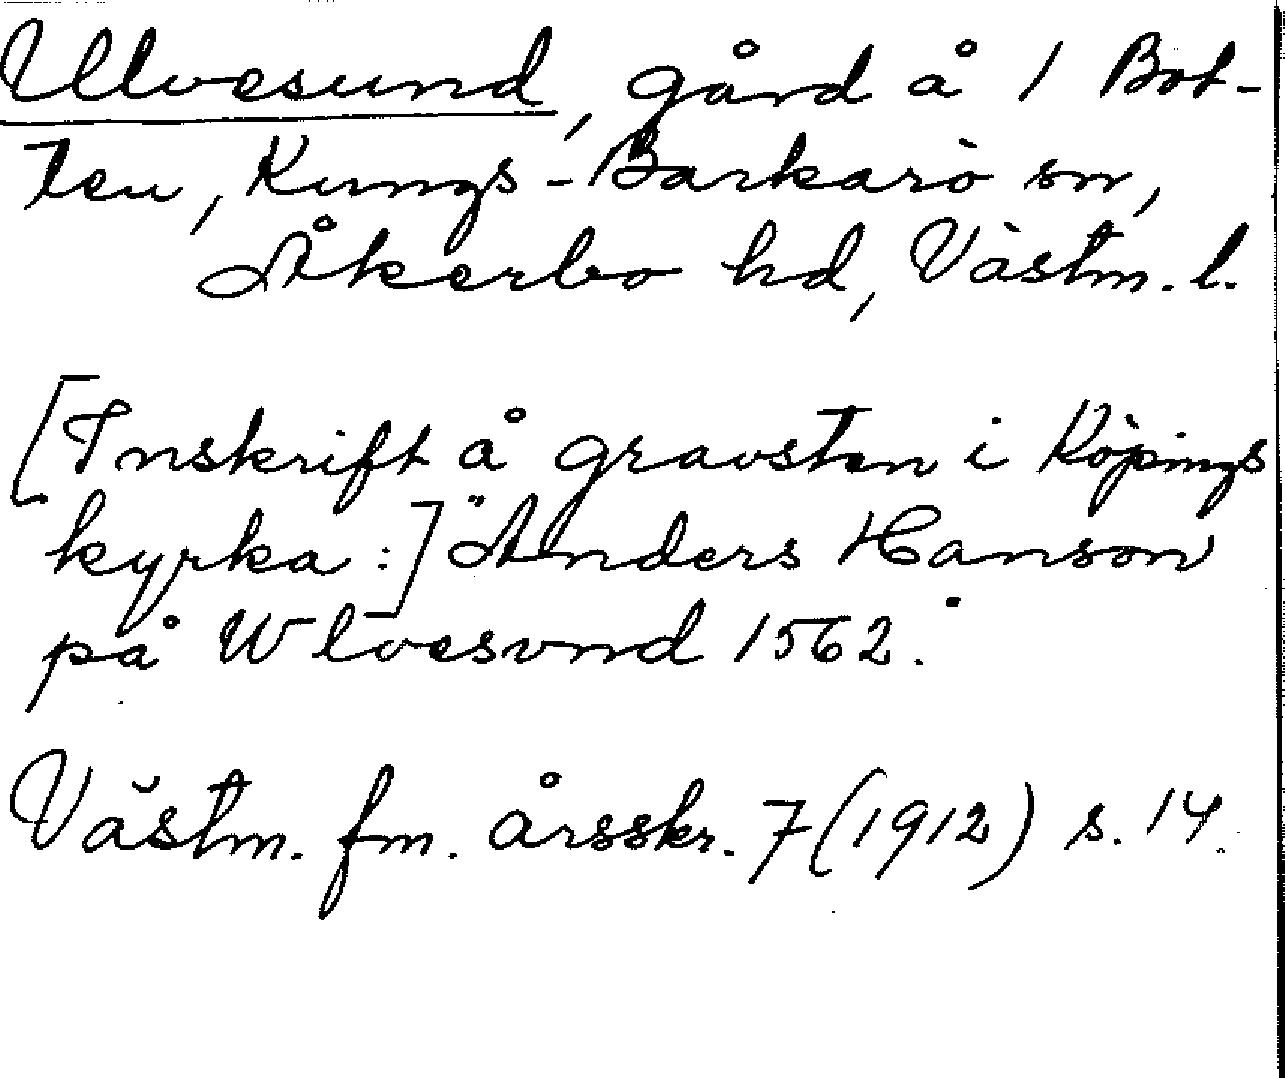 Ulvesund, gård å 1 Bot-
ten, Kungs-Barkarö sn,
Åkerbo hd, Västm. l.
[Inskrift å gravsten i Köpings
kyrka:] "Anders Hanson
på Wlvesvnd 1562."
Västm. fm. årsskr. 7 (1912) s. 14.